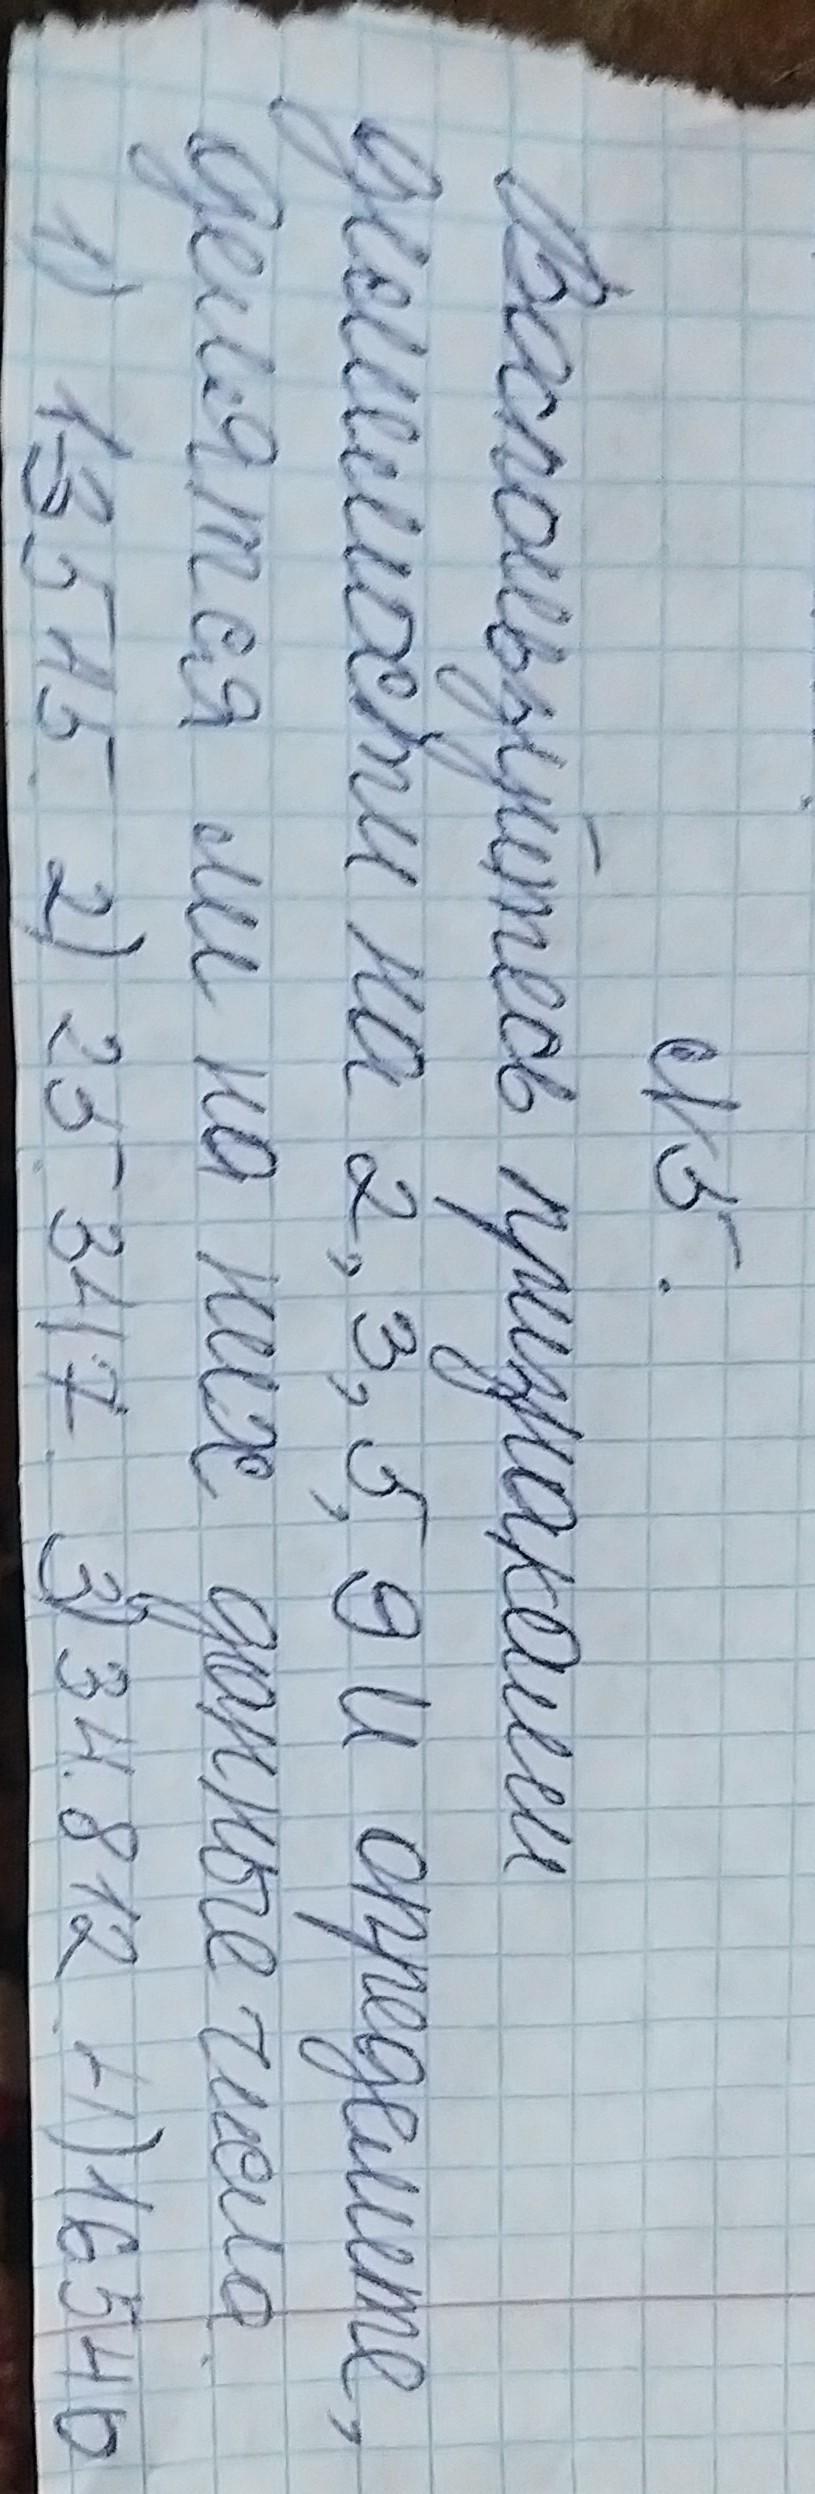 №5.
Воспользуйтесь признаками
делимости на 2, 3, 5, 9 и определите,
делятся ли на них данные числа
1) 13515 2) 25347 3) 34812 4) 16540